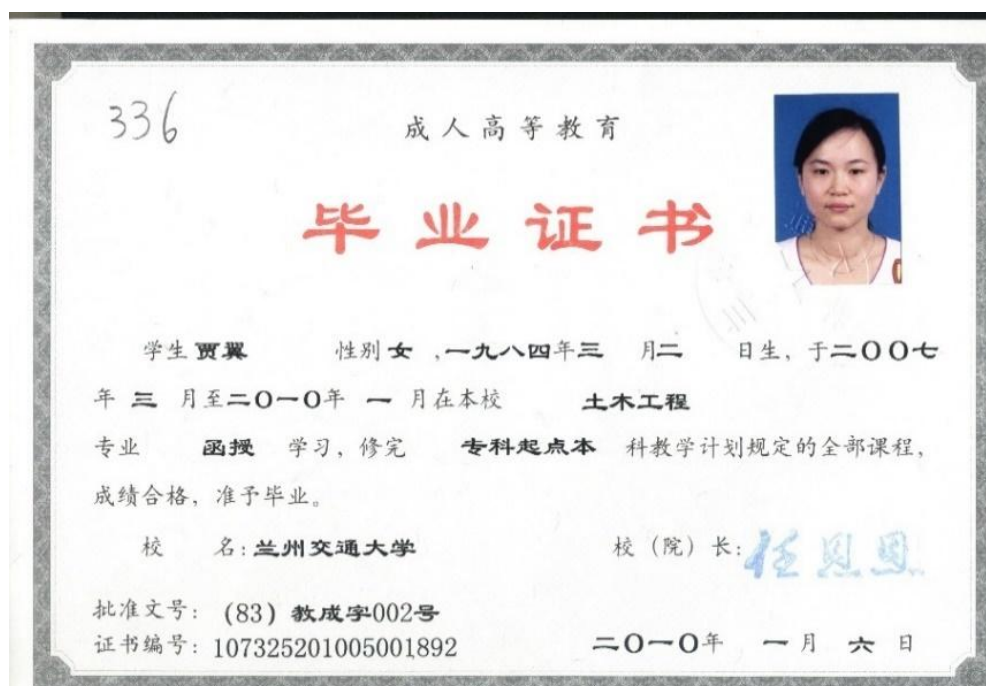 336
成人高等教育
毕业证书
学生 贾翼 性别 女 ,一九八四年三 月二 日生, 于二OO七
年 三 月至二O一O年 一 月在本校 土木工程
专业 函授 学习, 修完 专科起点本 科教学计划规定的全部课程,
成绩合格, 准予毕业。
校 名: 兰州交通大学
校（院）长: 任恩恩
批准文号: (83) 教成字002号
证书编号: 107325201005001892
二O一O年 一 月 六 日